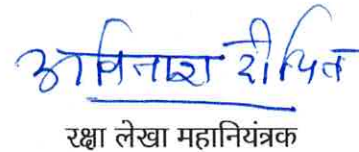 अविनाश दीक्षित
रक्षा लेखा महानियंत्रक